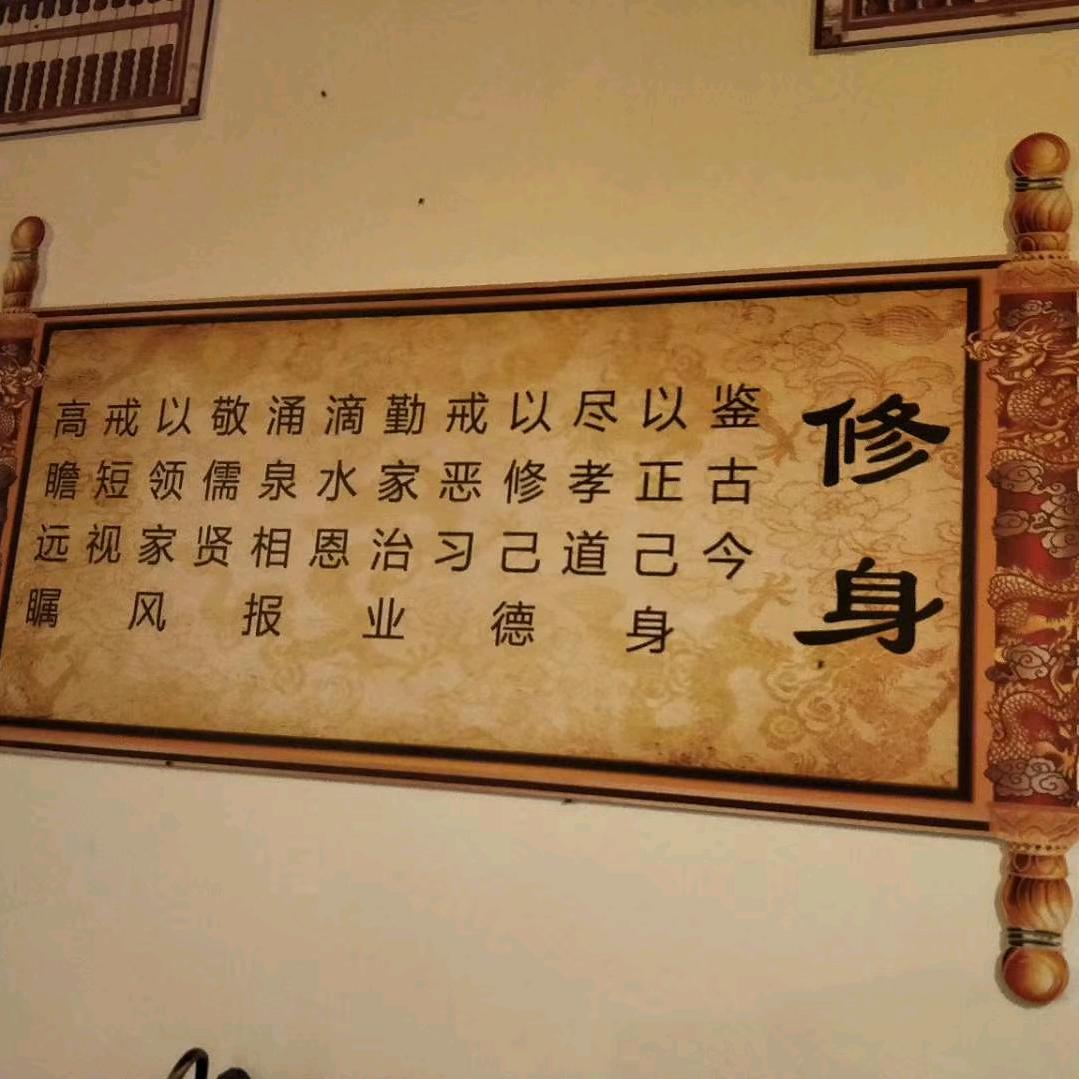 修身
鉴古今
以正己身
尽孝道
以修己德
戒恶习
勤家治业
滴水恩
涌泉相报
敬儒贤
以领家风
戒短视
高瞻远瞩